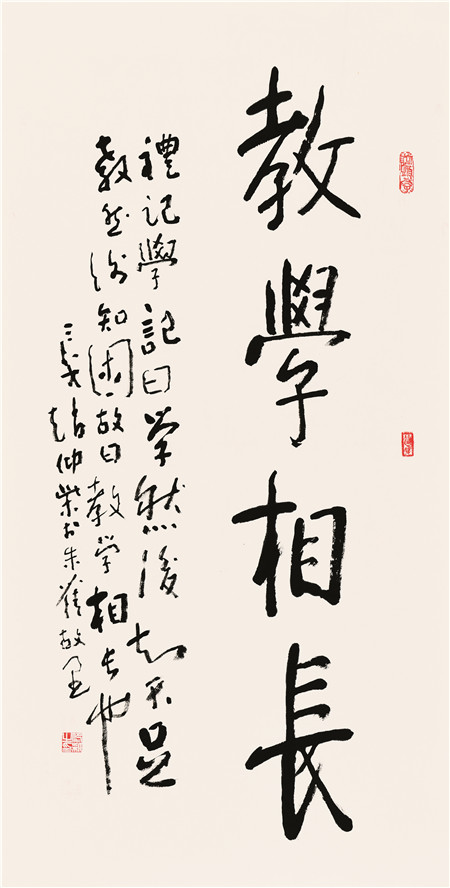 教學相長
禮記學記曰学然後知不足
教然後知困故曰教学相長也
三 趙仲